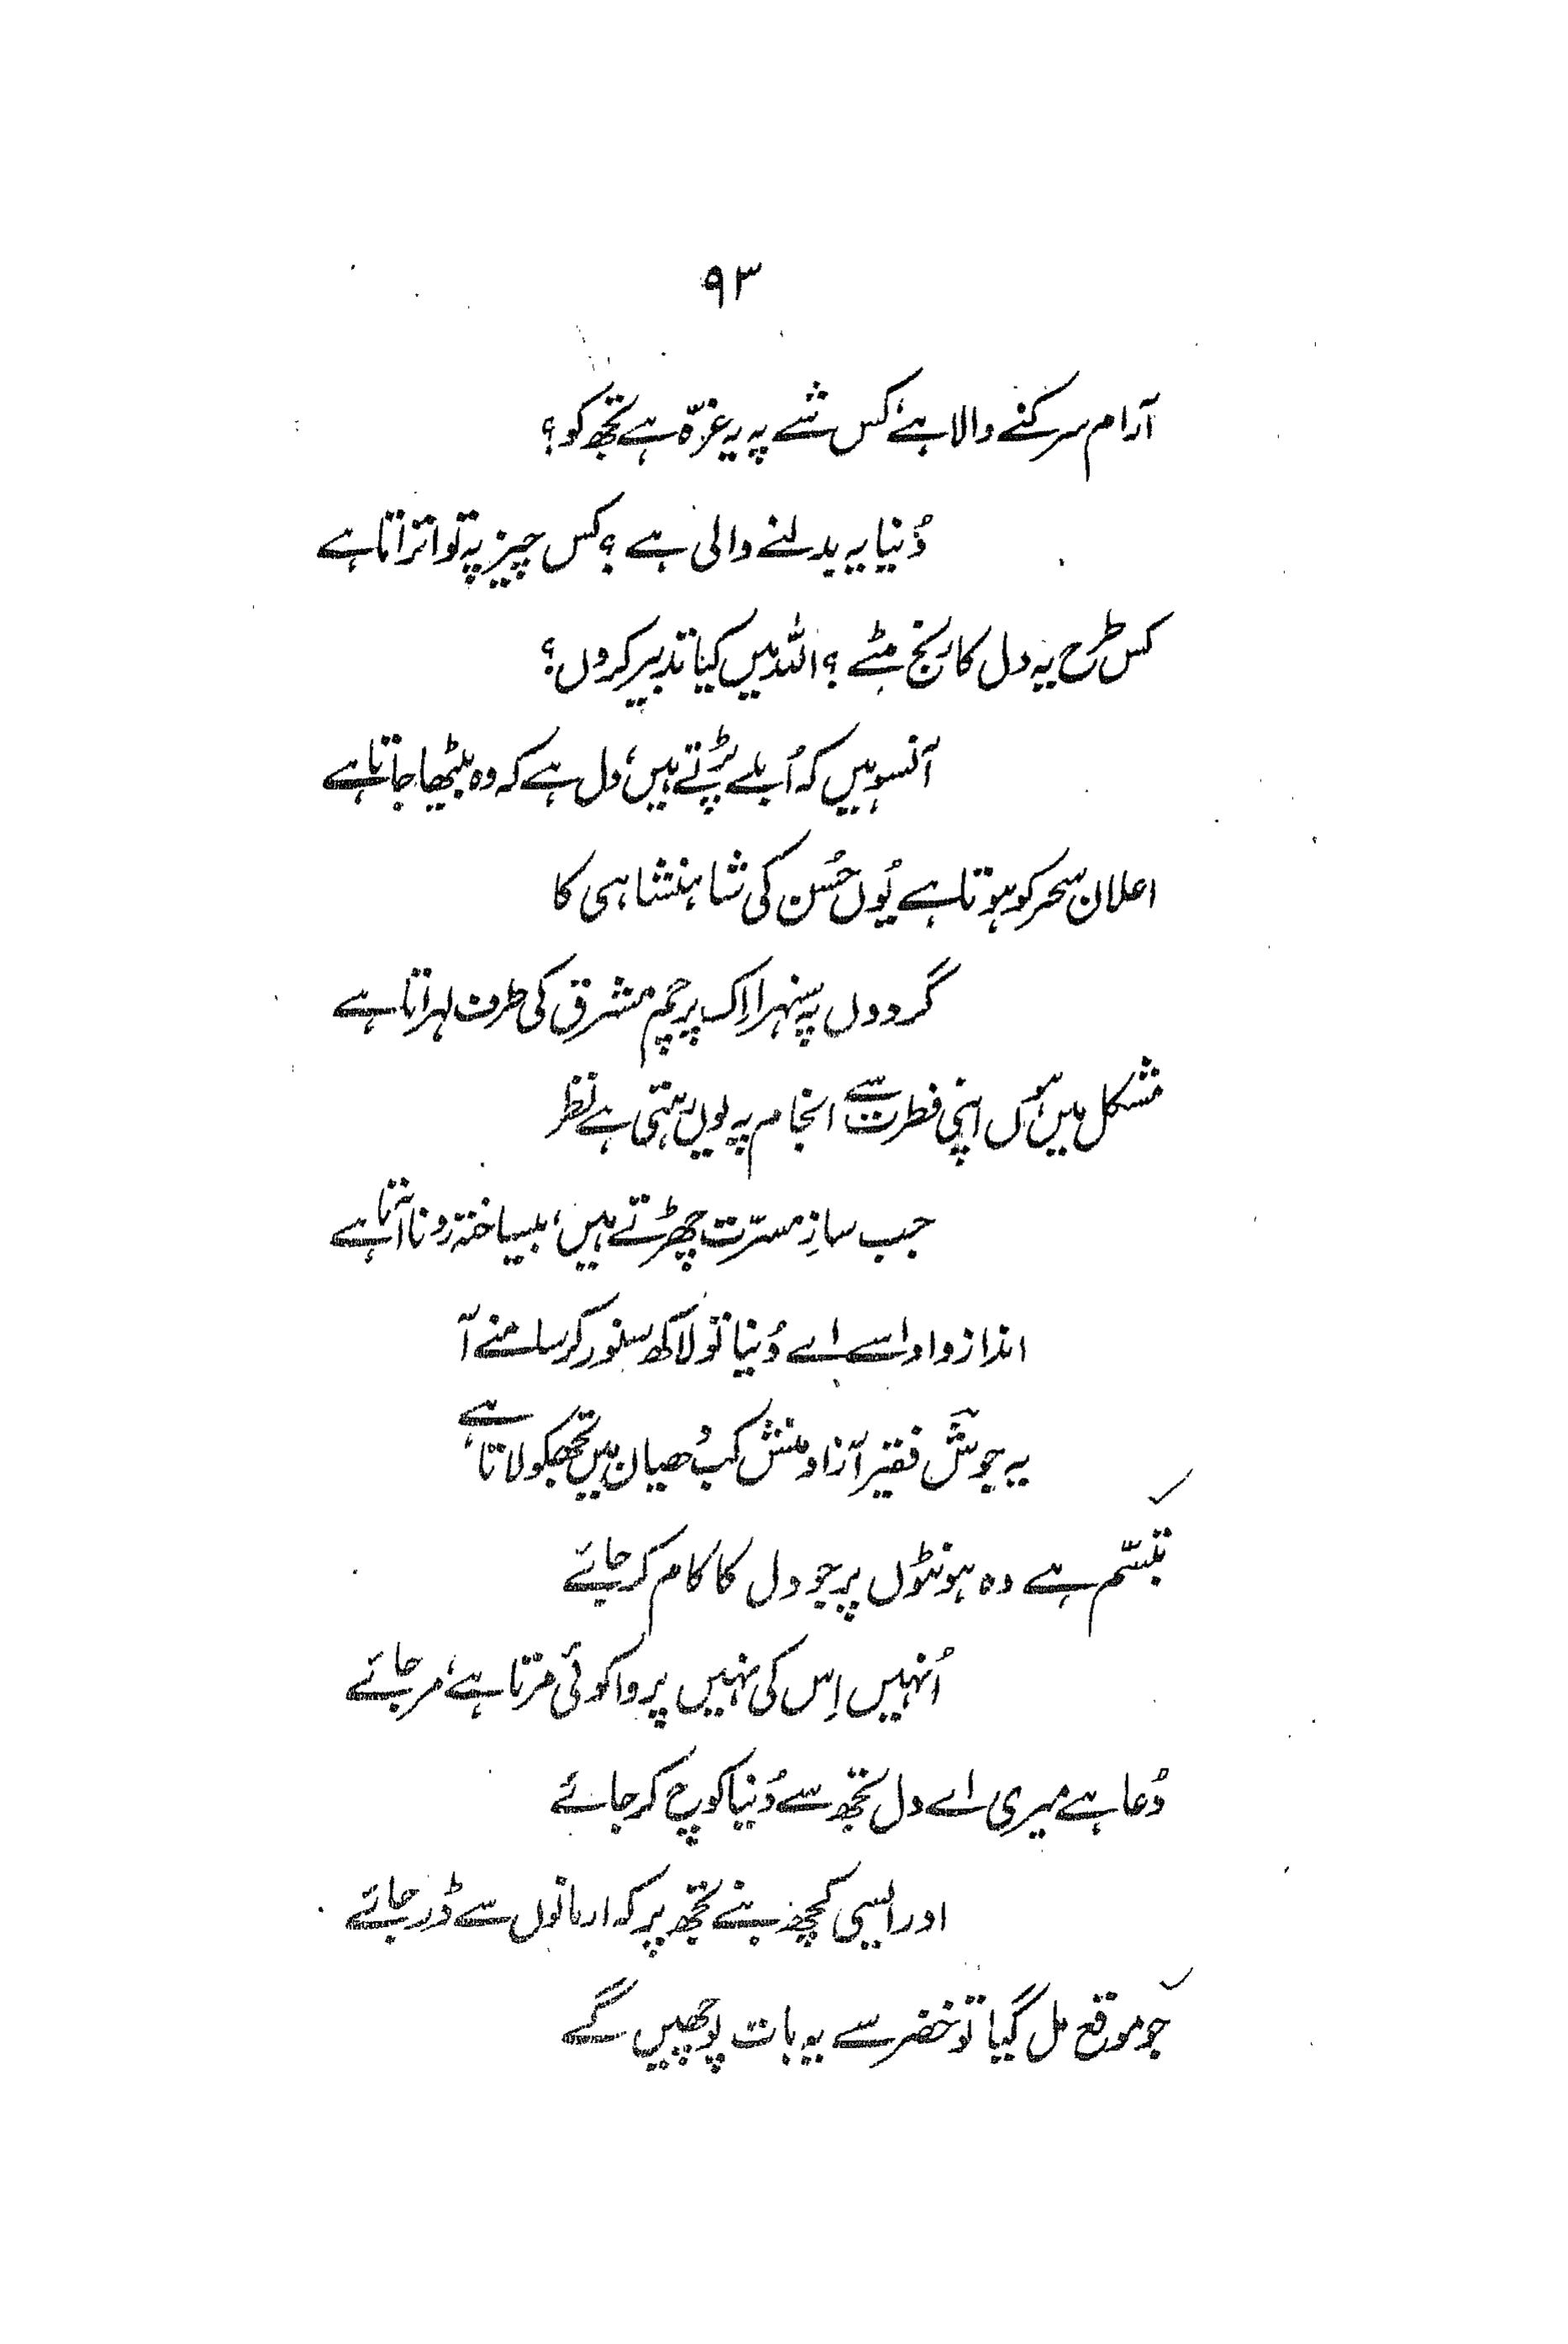 ۹۳
آرام سرکنے والا ہے، کس شے پہ یہ غرّہ ہے تجھ کو؟
دُنیا یہ بدلنے والی ہے؟ کس چیز پہ تو اتراتا ہے
کس طرح یہ دل کا رنج مٹے؟ اللہ میں کیا تدبیر کروں؟
آنسو ہیں کہ اُبلے پڑتے ہیں، دل ہے کہ وہ بیٹھا جاتا ہے
اعلان سحر کو ہوتا ہے یُوں حُسن کی شاہنشاہی کا
گردوں پہ سنہرا اِک پرچم مشرق کی طرف لہراتا ہے
مشکل میں ہُوں اپنی فطرت سے انجام پہ یوں رہتی ہے نظر
جب سازِ مسرّت چھڑتے ہیں، بیساختہ رونا آتا ہے
انداز و ادا سے اے دُنیا تو لاکھ سنور کر سامنے آ
یہ جوشؔ فقیر آزاد منش کب دُھیان میں تجھکو لاتا ہے
تبسّم ہے وہ ہونٹوں پر جو دل کا کام کر جائے
اُنہیں اِس کی نہیں پروا کوئی مرتا ہے، مر جائے
دُعا ہے میری اے دل تجھ سے دُنیا کوچ کر جائے
اور ایسی کچھ بنے تجھ پر کہ ارمانوں سے ڈر جائے
جو موقع مل گیا تو خضر سے یہ بات پوچھیں گے